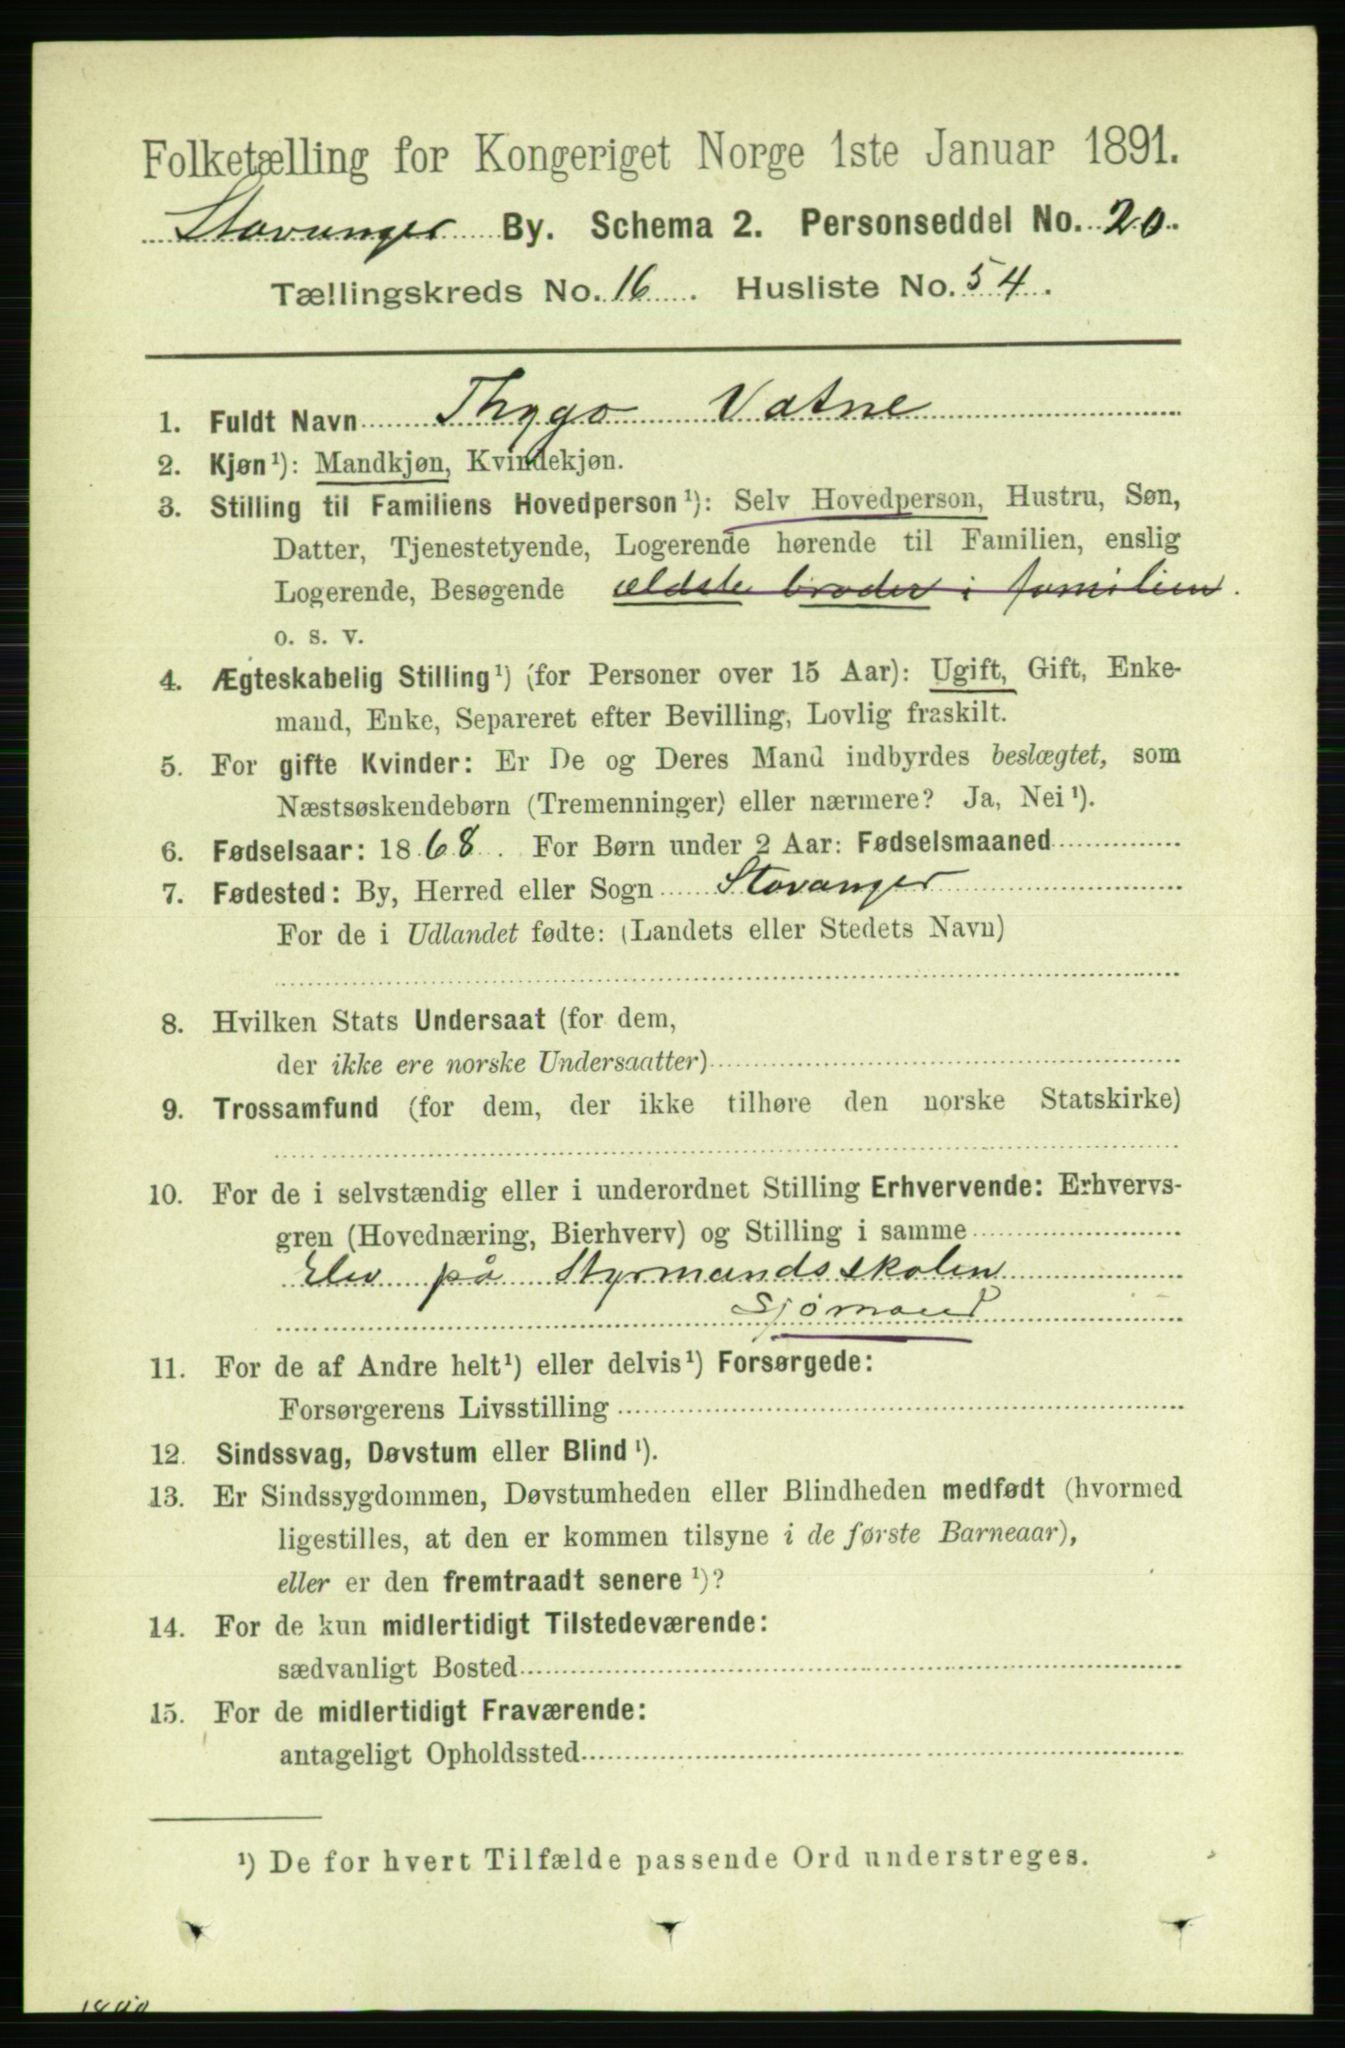 Folketælling for Kongeriget Norge 1ste Januar 1891.
Stavanger By. Schema 2. Personseddel No. 20.
Tællingskreds No. 16. Husliste No. 54.
1. Fuldt Navn Thygo Vatne
2. Kjøn¹): Mandkjøn, Kvindekjøn.
3. Stilling til Familiens Hovedperson¹): Selv Hovedperson, Hustru, Søn,
Datter, Tjenestetyende, Logerende hørende til Familien, enslig
Logerende, Besøgende ældste broder i familien.
o. s. v.
4. Ægteskabelig Stilling¹) (for Personer over 15 Aar): Ugift, Gift, Enke-
mand, Enke, Separeret efter Bevilling, Lovlig fraskilt.
5. For gifte Kvinder: Er De og Deres Mand indbyrdes beslægtet, som
Næstsøskendebørn (Tremenninger) eller nærmere? Ja, Nei¹).
6. Fødselsaar: 1868. For Børn under 2 Aar: Fødselsmaaned
7. Fødested: By, Herred eller Sogn Stavanger
For de i Udlandet fødte: (Landets eller Stedets Navn)
8. Hvilken Stats Undersaat (for dem,
der ikke ere norske Undersaatter)
9. Trossamfund (for dem, der ikke tilhøre den norske Statskirke)
10. For de i selvstændig eller i underordnet Stilling Erhvervende: Erhvervs-
gren (Hovednæring, Bierhverv) og Stilling i samme
Elev på Styrmandsskolen
Sjømand
11. For de af Andre helt¹) eller delvis¹) Forsørgede:
Forsørgerens Livsstilling
12. Sindssvag, Døvstum eller Blind¹).
13. Er Sindssygdommen, Døvstumheden eller Blindheden medfødt (hvormed
ligestilles, at den er kommen tilsyne i de første Barneaar),
eller er den fremtraadt senere¹)?
14. For de kun midlertidigt Tilstedeværende:
sædvanligt Bosted
15. For de midlertidigt Fraværende:
antageligt Opholdssted
¹) De for hvert Tilfælde passende Ord understreges.